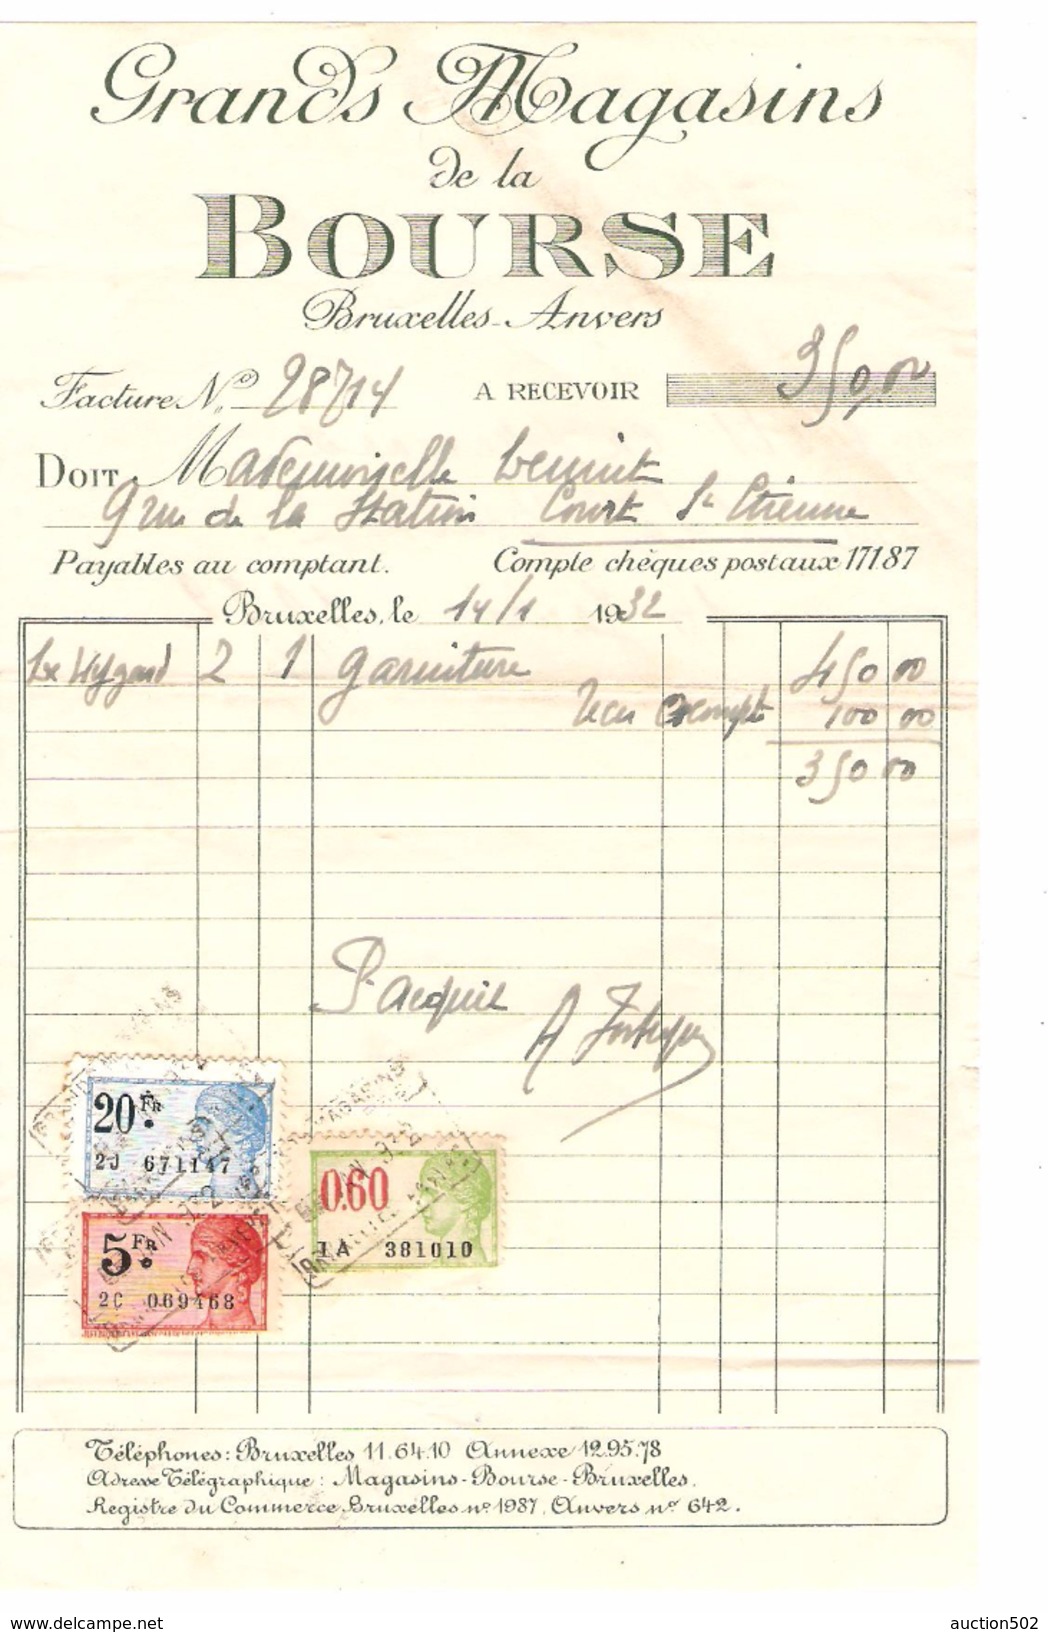 Grands Magasins
de la
BOURSE
Bruxelles-Anvers
Facture No. 28714 A RECEVOIR 350,00
DOIT Mademoiselle
9 rue de la Station Court St Etienne
Payables au comptant. Compte chèques postaux 17187
Bruxelles, le 14/1 1932
2 1 garniture 450 00
100 00
350 00
Pr acquit
A
20 Fr.
2J 671147
5 Fr.
2C 069468
0.60
1A 381010
Téléphones: Bruxelles 11.64.10 Annexe 12.95.78
Adresse Télégraphique: Magasins-Bourse-Bruxelles.
Registre du Commerce Bruxelles no 1987. Anvers no 642.
www.delcampe.net
auction502